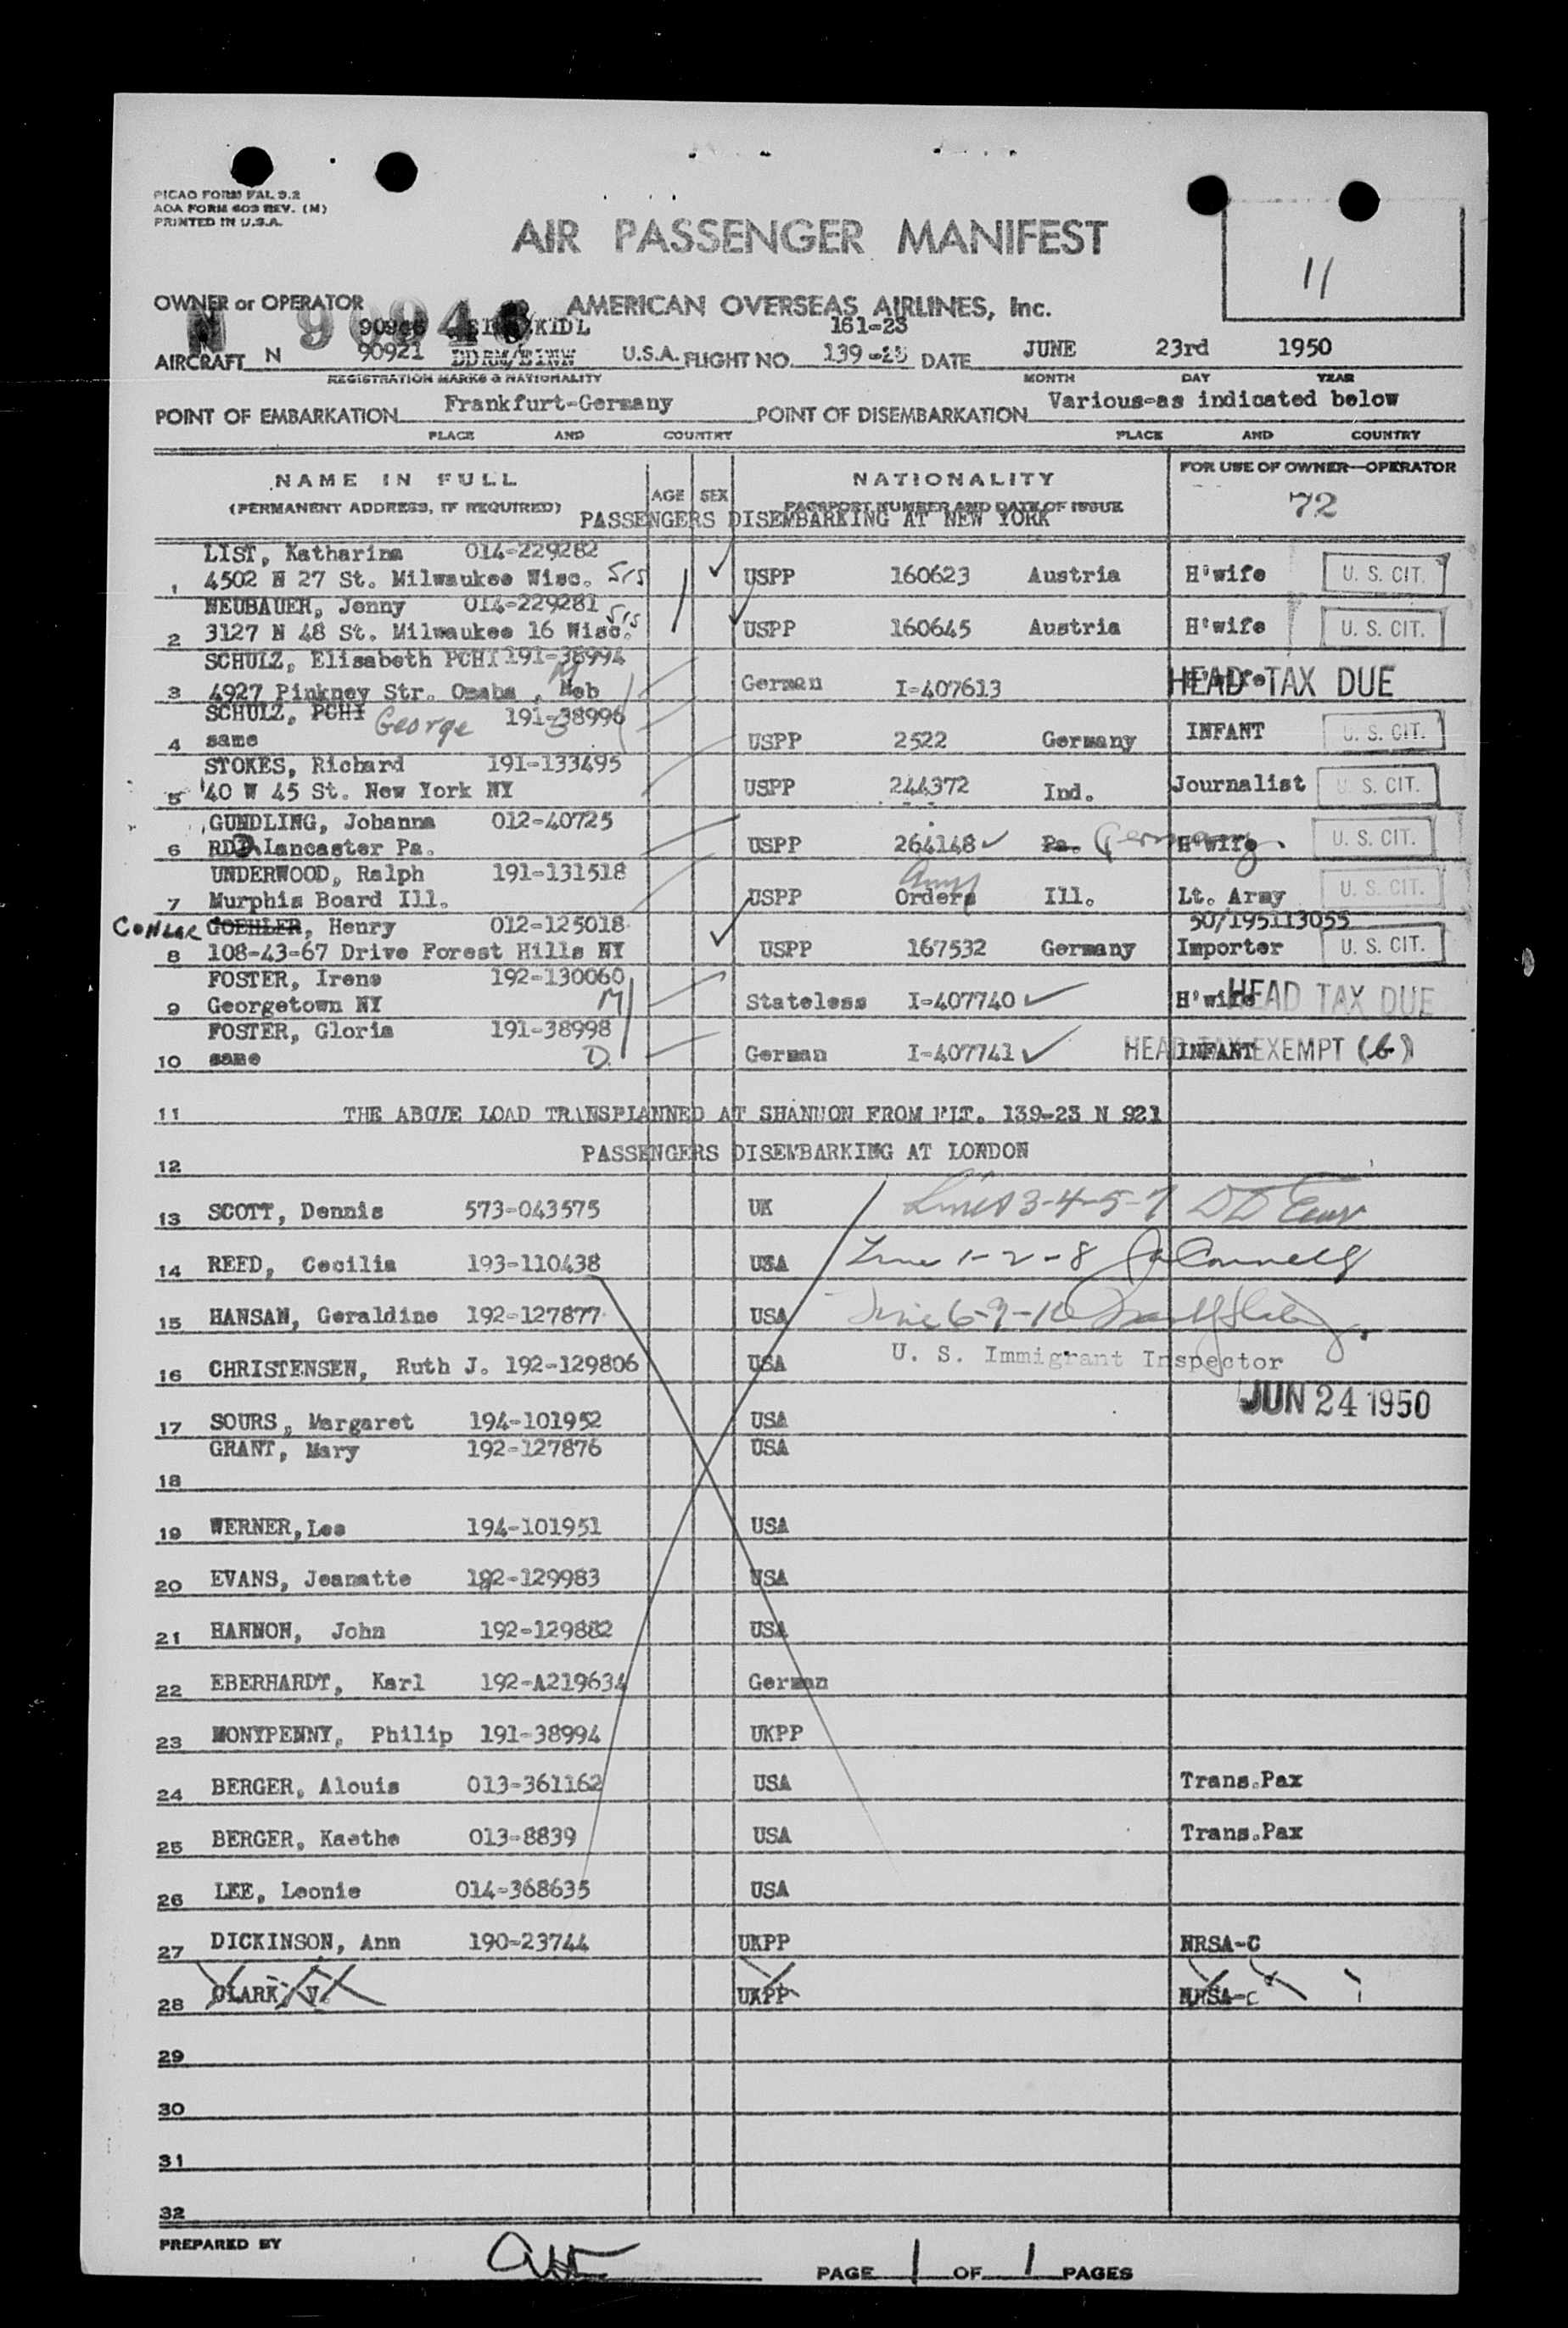 PICAO FORM FAL 3.2
AOA FORM 603 REV. (M)
PRINTED IN U.S.A.
AIR PASSENGER MANIFEST
11
OWNER or OPERATOR AMERICAN OVERSEAS AIRLINES, Inc.
N 90946
161-23
AIRCRAFT N 90921 DDRM/EINN U.S.A. FLIGHT NO. 139-23 DATE JUNE 23rd 1950
REGISTRATION MARKS & NATIONALITY MONTH DAY YEAR
POINT OF EMBARKATION Frankfurt-Germany POINT OF DISEMBARKATION Various-as indicated below
PLACE AND COUNTRY PLACE AND COUNTRY
NAME IN FULL AGE SEX NATIONALITY FOR USE OF OWNER—OPERATOR
(PERMANENT ADDRESS, IF REQUIRED) PASSPORT NUMBER AND DATE OF ISSUE 72
PASSENGERS DISEMBARKING AT NEW YORK
LIST, Katharina 014-229282
1 4502 N 27 St. Milwaukee Wisc. USPP 160623 Austria H'wife U. S. CIT.
NEUBAUER, Jenny 014-229281
2 3127 N 48 St. Milwaukee 16 Wisc. USPP 160645 Austria H'wife U. S. CIT.
SCHULZ, Elisabeth PCHI 191-38994
3 4927 Pinkney Str. Omaha, Neb M German I-407613 HEAD TAX DUE
SCHULZ, PCHI George 191-38996
4 same USPP 2522 Germany INFANT U. S. CIT.
STOKES, Richard 191-133495
5 40 W 45 St. New York NY USPP 244372 Ind. Journalist U. S. CIT.
GUNDLING, Johanna 012-40725
6 Lancaster Pa. USPP 264148 Pa. Germany H'wife U. S. CIT.
UNDERWOOD, Ralph 191-131518
7 Murphis Board Ill. USPP Army Orders Ill. Lt. Army U. S. CIT.
GOEHLER, Henry 012-125018 50/195113055
8 108-43-67 Drive Forest Hills NY USPP 167532 Germany Importer U. S. CIT.
FOSTER, Irene 192-130060
9 Georgetown NY M Stateless I-407740 H'wife HEAD TAX DUE
FOSTER, Gloria 191-38998
10 same D. German I-407741 INFANT HEAD TAX EXEMPT (6)
11 THE ABOVE LOAD TRANSPLANNED AT SHANNON FROM FLT. 139-23 N 921
12 PASSENGERS DISEMBARKING AT LONDON
13 SCOTT, Dennis 573-043575 UK Lines 3-4-5-7
14 REED, Cecilia 193-110438 USA Line 1-2-8
15 HANSAN, Geraldine 192-127877 USA Line 6-9-10
16 CHRISTENSEN, Ruth J. 192-129806 USA U. S. Immigrant Inspector
JUN 24 1950
17 SOURS, Margaret 194-101952 USA
GRANT, Mary 192-127876 USA
18
19 WERNER, Lee 194-101951 USA
20 EVANS, Jeanatte 192-129983 USA
21 HANNON, John 192-129882 USA
22 EBERHARDT, Karl 192-A219634 German
23 MONYPENNY, Philip 191-38994 UKPP
24 BERGER, Alouis 013-361162 USA Trans.Pax
25 BERGER, Kaethe 013-8839 USA Trans.Pax
26 LEE, Leonie 014-368635 USA
27 DICKINSON, Ann 190-23744 UKPP NRSA-C
28 CLARK, V. UKPP NRSA-C
29
30
31
32
PREPARED BY PAGE 1 OF 1 PAGES